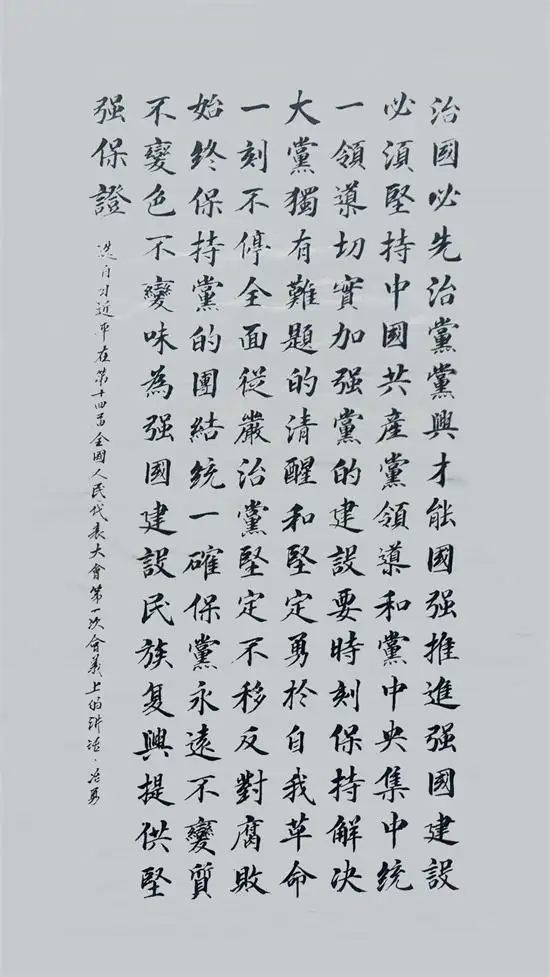 治國必先治黨黨興才能國强推進强國建設
必須堅持中國共產黨領導和黨中央集中統
一領導切實加强黨的建設要時刻保持解決
大黨獨有難題的清醒和堅定勇於自我革命
一刻不停全面從嚴治黨堅定不移反對腐敗
始終保持黨的團結統一確保黨永遠不變質
不變色不變味為强國建設民族复興提供堅
强保證
选自习近平在第十四届全國人民代表大會第一次会義上的讲话·冶勇